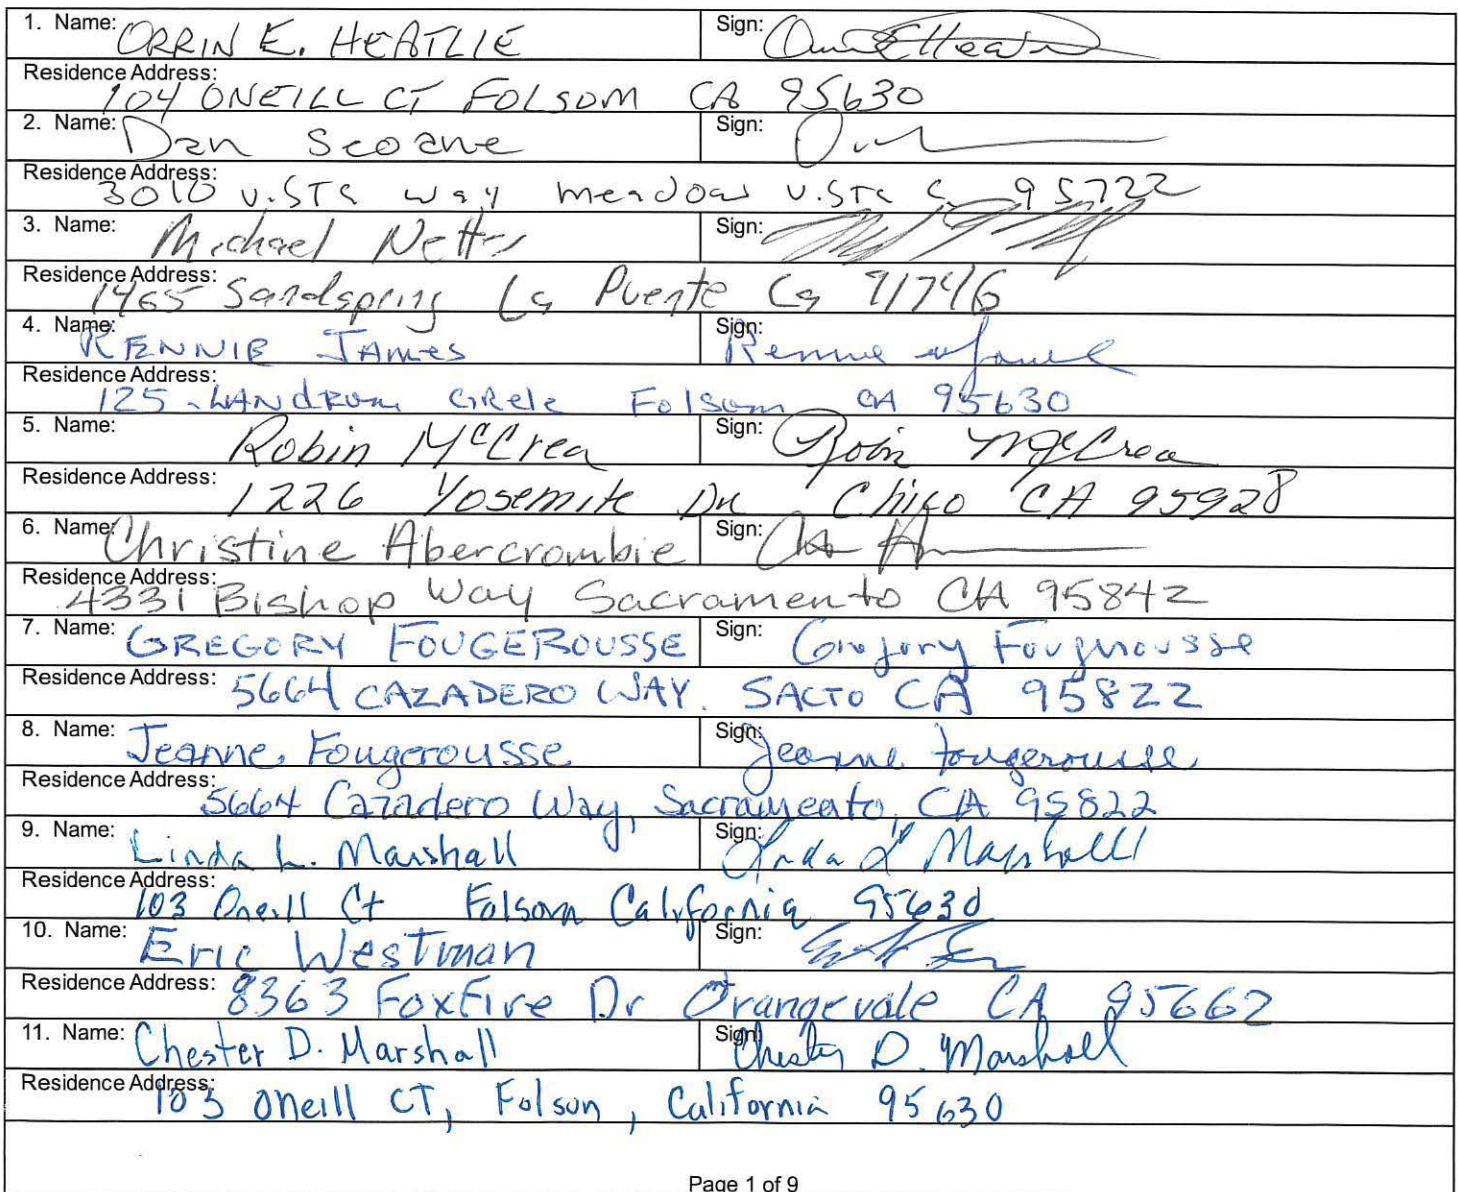 1. Name: ORRIN E. HEATLIE Sign: Orrin E Heatlie
Residence Address: 104 ONEILL CT FOLSOM CA 95630
2. Name: Dan Seoane Sign:
Residence Address: 3010 vista way meadow vista Ca 95722
3. Name: Michael Netter Sign:
Residence Address: 1465 Sandspring La Puente Ca 91746
4. Name: RENNIE JAMES Sign: Rennie James
Residence Address: 125 LANDRUM CIRCle Folsom CA 95630
5. Name: Robin McCrea Sign: Robin McCrea
Residence Address: 1226 Yosemite Dr Chico CA 95928
6. Name: Christine Abercrombie Sign:
Residence Address: 4331 Bishop Way Sacramento CA 95842
7. Name: GREGORY FOUGEROUSSE Sign: Gregory Fougerousse
Residence Address: 5664 CAZADERO WAY. SACTO CA 95822
8. Name: Jeanne Fougerousse Sign: Jeanne Fougerousse
Residence Address: 5664 Cazadero Way, Sacramento, CA 95822
9. Name: Linda L. Marshall Sign: Linda L Marshall
Residence Address: 103 Oneill Ct Folsom California 95630
10. Name: Eric Westman Sign:
Residence Address: 8363 FoxFire Dr Orangevale CA 95662
11. Name: Chester D. Marshall Sign: Chester D. Marshall
Residence Address: 103 Oneill CT, Folsom, California 95630
Page 1 of 9